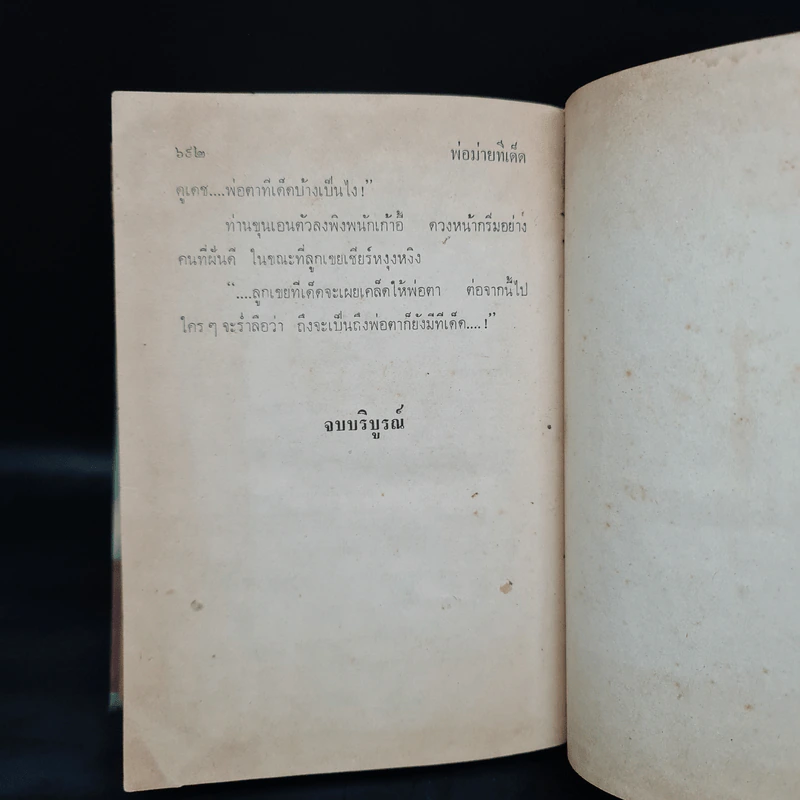 ๖๙๒ พ่อม่ายทีเด็ด
ดูเดช....พ่อตาทีเด็ดบ้างเป็นไง!”
ท่านขุนเอนตัวลงพิงพนักเก้าอี้ ดวงหน้ากรึ่มอย่าง
คนที่ฝันดี ในขณะที่ลูกเขยเชียร์หงุงหงิง
“....ลูกเขยทีเด็ดจะเผยเคล็ดให้พ่อตา ต่อจากนี้ไป
ใคร ๆ จะร่ำลือว่า ถึงจะเป็นถึงพ่อตาก็ยังมีทีเด็ด....!”
จบบริบูรณ์